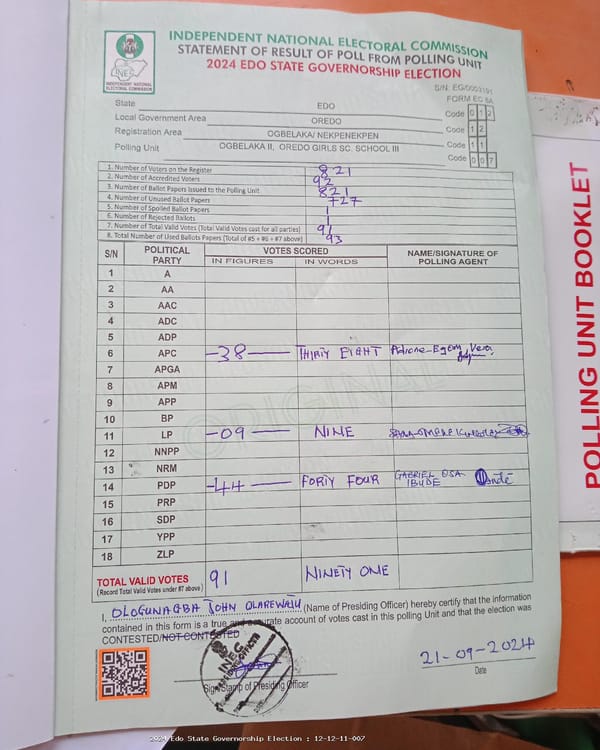 INDEPENDENT NATIONAL ELECTORAL COMMISSION
STATEMENT OF RESULT OF POLL FROM POLLING UNIT
2024 EDO STATE GOVERNORSHIP ELECTION
INEC
INDEPENDENT NATIONAL ELECTORAL COMMISSION
S/N: EG0003191
FORM EC 8A
State EDO Code 0 1 2
Local Government Area OREDO Code 1 2
Registration Area OGBELAKA/ NEKPENEKPEN Code 1 1
Polling Unit OGBELAKA II, OREDO GIRLS SC. SCHOOL III Code 0 0 7
1. Number of Voters on the Register 821
2. Number of Accredited Voters 92
3. Number of Ballot Papers Issued to the Polling Unit 821
4. Number of Unused Ballot Papers 727
5. Number of Spoiled Ballot Papers 1
6. Number of Rejected Ballots 1
7. Number of Total Valid Votes (Total Valid Votes cast for all parties) 91
8. Total Number of Used Ballots Papers (Total of #5 + #6 + #7 above) 93
S/N POLITICAL PARTY VOTES SCORED NAME/SIGNATURE OF POLLING AGENT
IN FIGURES IN WORDS
1 A
2 AA
3 AAC
4 ADC
5 ADP
6 APC -38- THIRTY EIGHT Vera
7 APGA
8 APM
9 APP
10 BP
11 LP -09- NINE
12 NNPP
13 NRM
14 PDP -44- FORTY FOUR GABRIEL OSA IBUDE
15 PRP
16 SDP
17 YPP
18 ZLP
ORIGINAL
TOTAL VALID VOTES 91 NINETY ONE
(Record Total Valid Votes under #7 above)
I, OLOGUNAGBA JOHN OLAREWAJU (Name of Presiding Officer) hereby certify that the information
contained in this form is a true and accurate account of votes cast in this polling Unit and that the election was
CONTESTED/NOT CONTESTED
INEC
21-09-2024
Sign/Stamp of Presiding Officer
Date
POLLING UNIT BOOKLET
2024 Edo State Governorship Election : 12-12-11-007